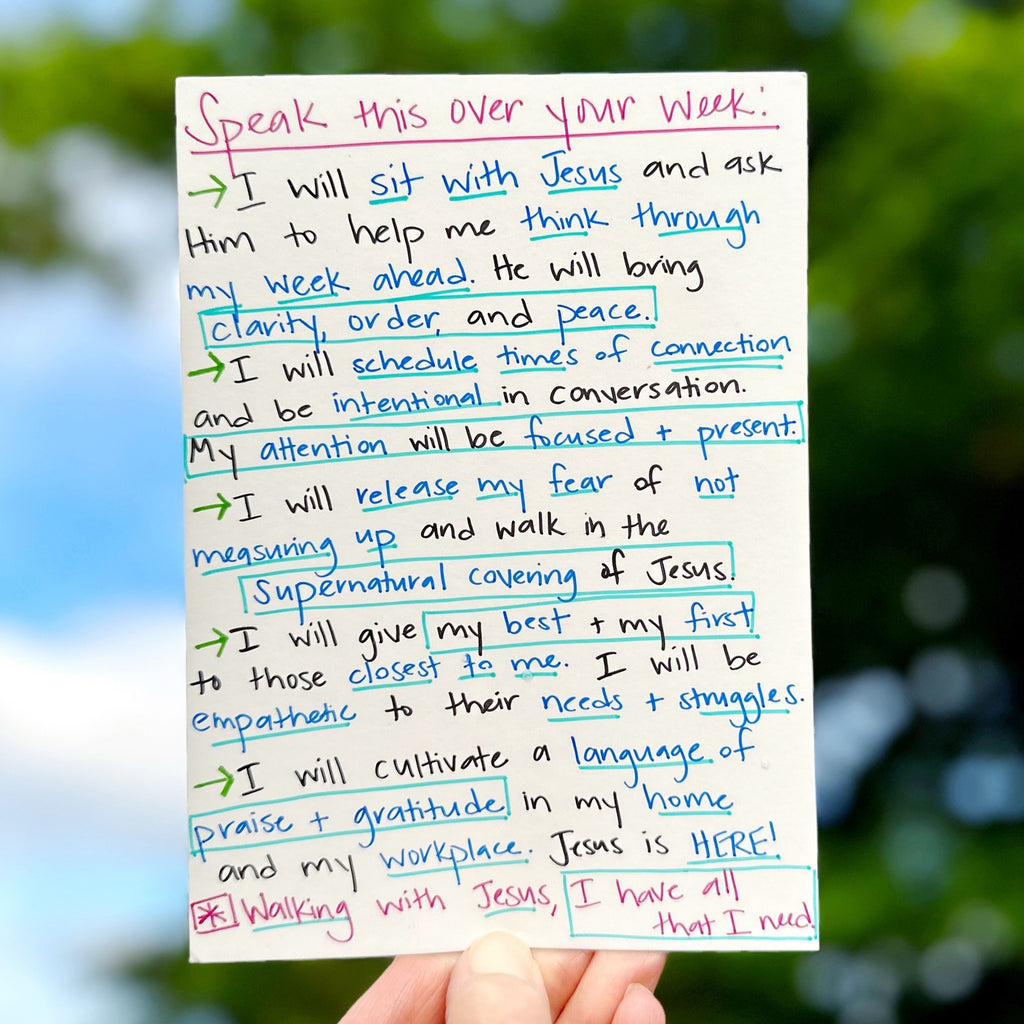 Speak this over your week:
→ I will sit with Jesus and ask
Him to help me think through
my week ahead. He will bring
clarity, order, and peace.
→ I will schedule times of connection
and be intentional in conversation.
My attention will be focused + present.
→ I will release my fear of not
measuring up and walk in the
supernatural covering of Jesus.
→ I will give my best + my first
to those closest to me. I will be
empathetic to their needs + struggles.
→ I will cultivate a language of
praise + gratitude in my home
and my workplace. Jesus is HERE!
* Walking with Jesus, I have all
that I need.